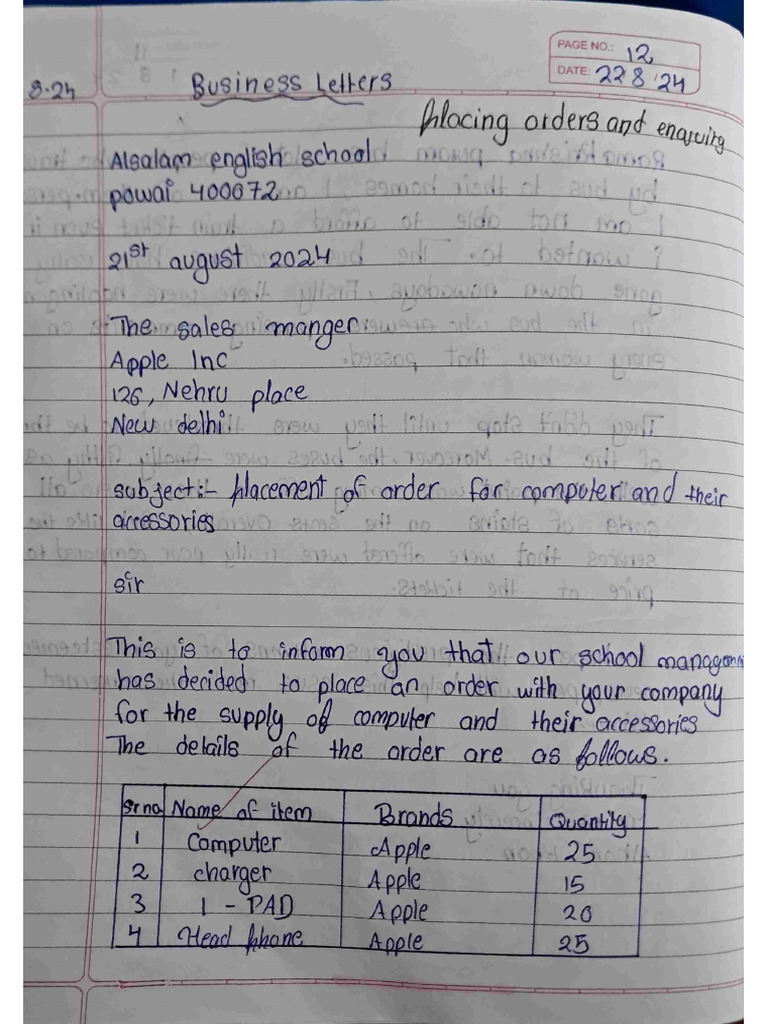 PAGE NO.: 12
DATE: 22 8 '24
8.24 Business Letters
Placing orders and enquiry
Alsalam english school
powai 400072
21st august 2024
The sales manger
Apple Inc
126, Nehru place
New delhi
subject:- placement of order for computer and their
accessories
sir
This is to inform you that our school
has decided to place an order with your company
for the supply of computer and their accessories
The details of the order are as follows.
Sr no Name of item Brands Quantity
1 Computer Apple 25
2 charger Apple 15
3 I - PAD Apple 20
4 Head phone Apple 25